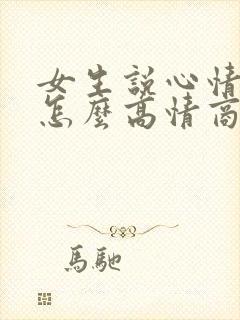 女生説心情
怎麼高情商
馬馳